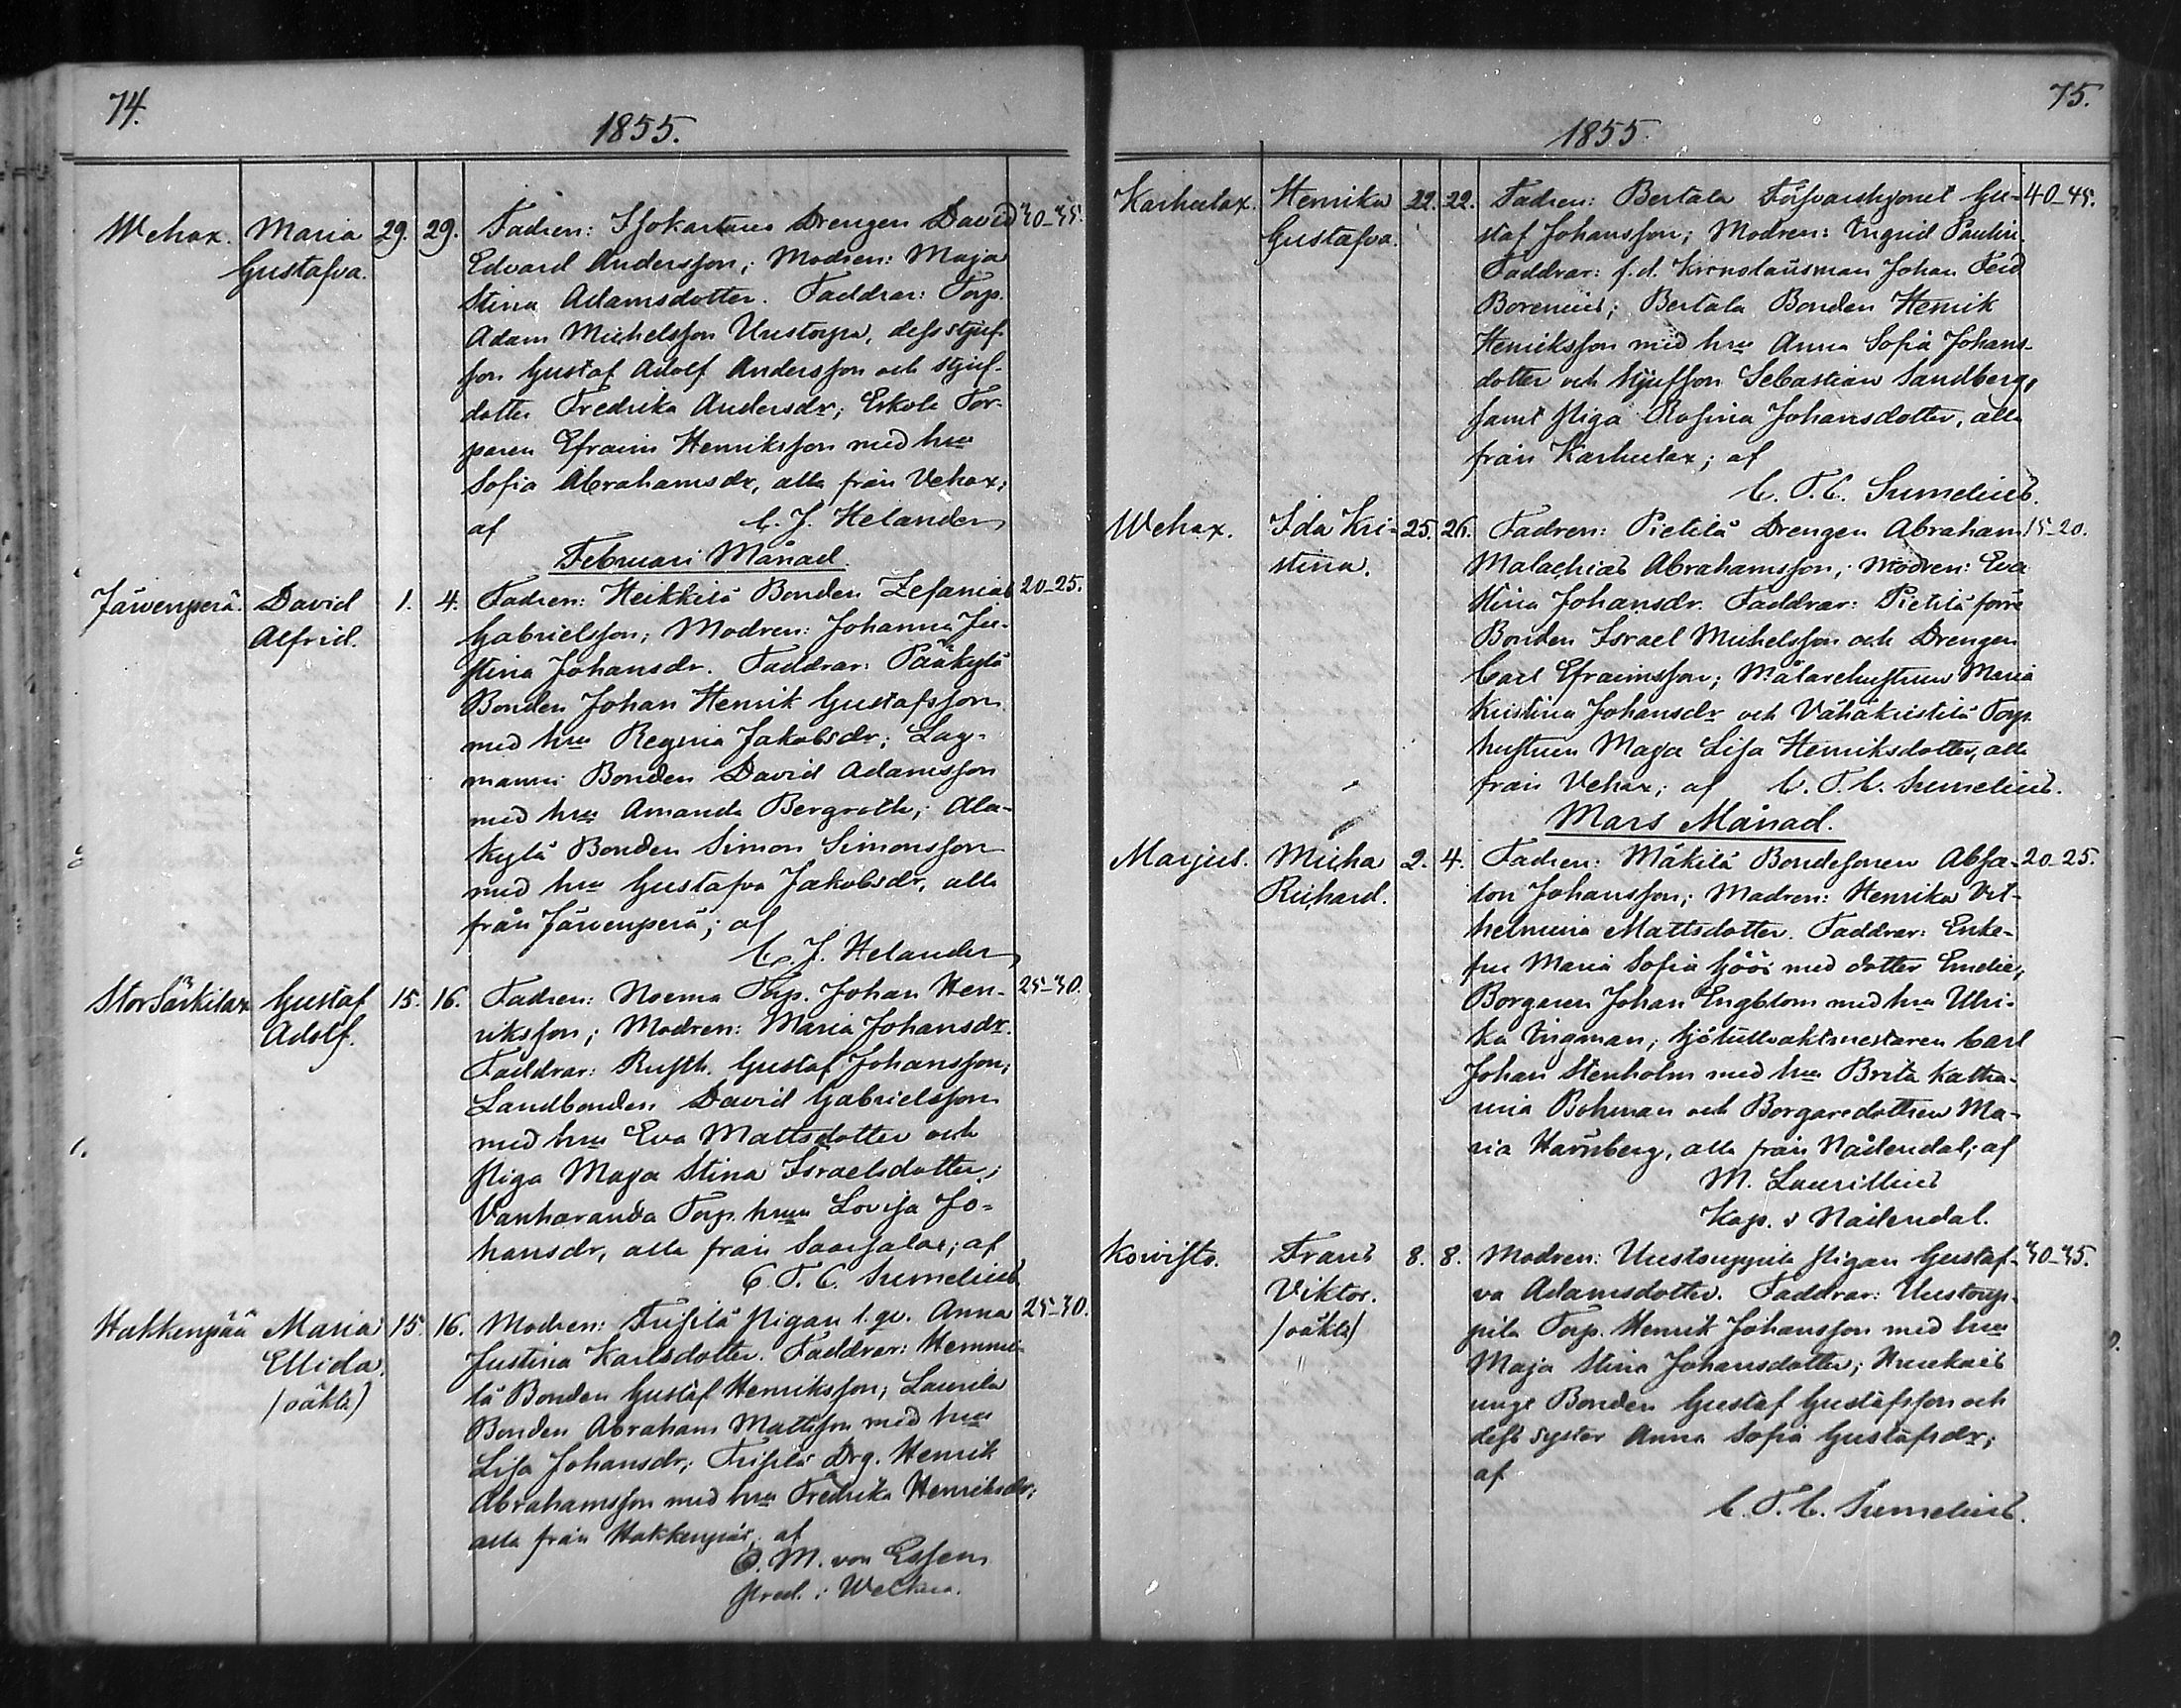 74.
1855.
Wehax. Maria 29. 29. Fadren: Isokartano Drengen David 30-35.
Gustafva. Edvard Andersson; Modren: Maja
Stina Adamsdotter. Faddrar: Torp.
Adam Michelsson Uustorpa, dess styf-
son Gustaf Adolf Andersson och styf-
dotter Fredrika Andersdr; Eskola Tor-
paren Efraim Henriksson med hru
Sofia Abrahamsdr, alla från Vehax;
af C. J. Helander
Februari Månad.
Järvenperä. David 1. 4. Fadren: Heikkilä Bonden Zefanias 20-25.
Alfrid. Gabrielsson; Modren: Johanna Ju-
stina Johansdr. Faddrar: Pääkylä
Bonden Johan Henrik Gustafsson
med hru Regina Jakobsdr; Lag-
manni Bonden David Adamsson
med hru Amanda Bergroth; Ala-
kylä Bonden Simon Simonsson
med hru Gustafva Jakobsdr, alla
från Järvenperä; af
C. J. Helander
Stor Särkilax Gustaf 15. 16. Fadren: Noema Torp. Johan Hen- 25-30.
Adolf. riksson; Modren: Maria Johansdr.
Faddrar: Rusth. Gustaf Johansson;
Landbonden David Gabrielsson
med hru Eva Mattsdotter och
Piga Maja Stina Israelsdotter;
Vanharanda Torp. hrun Lovisa Jo-
hansdr, alla från Saarsalax; af
C. T. C. Sumelius
Hakkenpää Maria 15. 16. Modren: Friisilä Pigan l. qv. Anna 25-30.
Ellida. Justina Karlsdotter. Faddrar: Hemmi-
(oäkta) lä Bonden Gustaf Henriksson; Laurila
Bonden Abraham Mattsson med hru
Lisa Johansdr; Friisilä Drg. Henrik
Abrahamsson med hru Fredrika Henriksdr;
alla från Hakkenpää; af
O. M. von Essen
Pred. i Welkua.
75.
1855.
Karhulax. Henrika 22. 22. Fadren: Bertala Försvarshjonet Gu- 40-45.
Gustafva. staf Johansson; Modren: Ingrid Paulin.
Faddrar: f.d. Kronolänsman Johan Ferd
Borenius; Bertala Bonden Henrik
Henriksson med hru Anna Sofia Johans-
dotter och Styfson Sebastian Sandberg,
samt Piga Rosina Johansdotter, alla
från Karhulax; af
C. T. C. Sumelius.
Wehax. Ida Kri- 25. 26. Fadren: Pietilä Drengen Abraham 15-20.
stina. Malachias Abrahamsson; Modren: Eva
Stina Johansdr. Faddrar: Pietilä förre
Bonden Israel Michelsson och Drengen
Carl Efraimsson; Målarehustrun Maria
Kristina Johansdr och Vähäkristilä Torp.
hustrun Maja Lisa Henriksdotter, alla
från Vehax; af C. T. C. Sumelius.
Mars Månad.
Marjus. Micha 2. 4. Fadren: Mäkilä Bondesonen Absa- 20-25.
Richard. lon Johansson; Modren: Henrika Vil-
helmina Mattsdotter. Faddrar: Enke-
fru Maria Sofia Göös med dotter Emelie;
Borgaren Johan Engblom med hru Ulri-
ka Ingman; Sjötullvaktmestaren Carl
Johan Stenholm med hru Brita Katha-
rina Bohman och Borgaredottren Ma-
ria Harnberg, alla från Nådendal; af
M. Laurillius
Kap. i Nådendal.
Koivisto. Frans 8. 8. Modren: Uustouppila Pigan Gustaf- 30-35.
Viktor. va Adamsdotter. Faddrar: Uustoup-
(oäkta) pila Torp. Henrik Johansson med hru
Maja Stina Johansdotter;
unge Bonden Gustaf Gustafsson och
dess syster Anna Sofia Gustafsdr;
af
C. T. C. Sumelius.